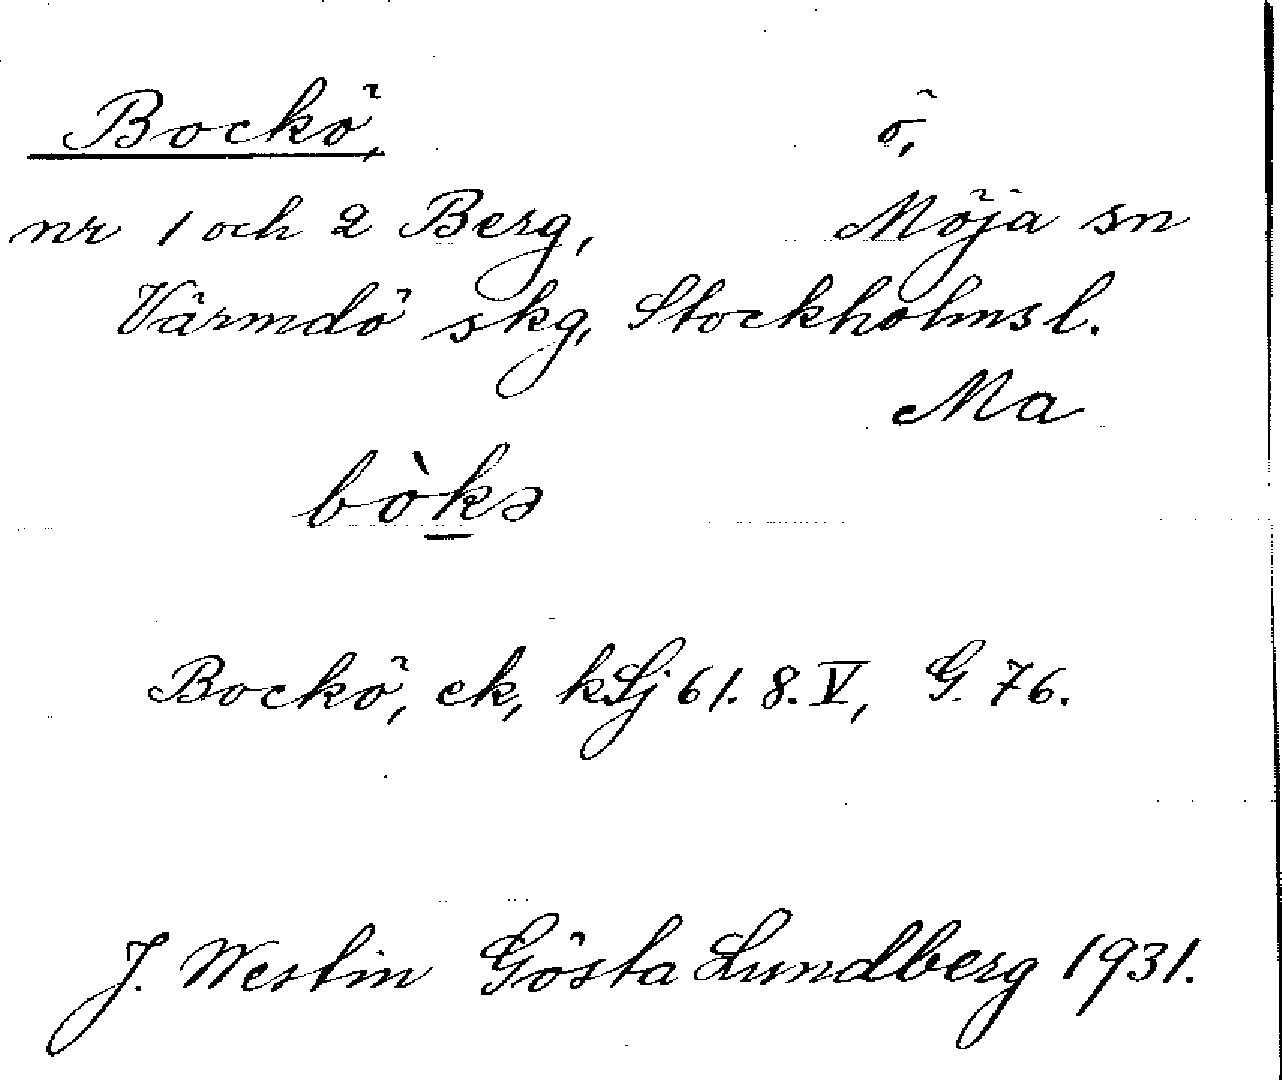 Bockö, ö,
nr 1 och 2 Berg, Möja sn
Värmdö skg, Stockholms l.
Ma
bòkə
Bockö, ek, kLj 61. 8. V, G. 76.
J. Westin Gösta Lundberg 1931.